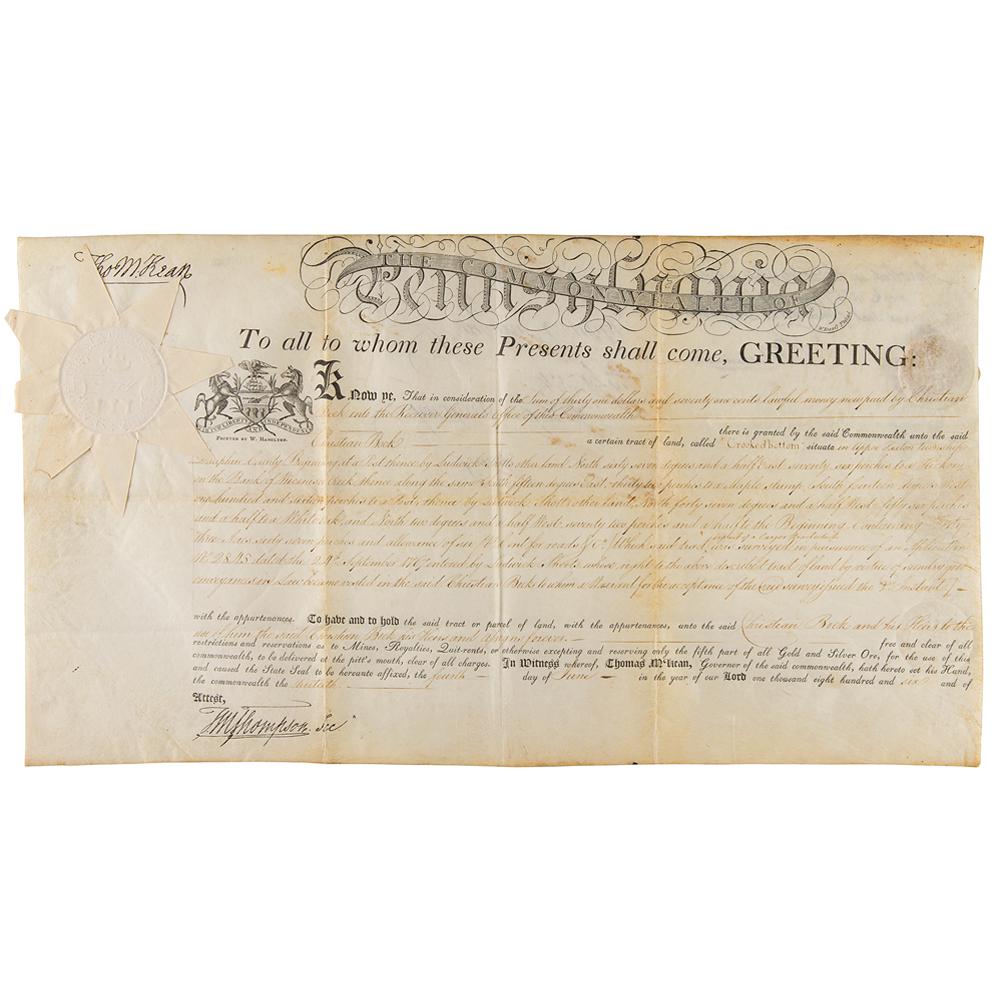 Tho M:Kean
THE COMMONWEALTH OF
Pennsylvania
To all to whom these Presents shall come, GREETING:
Know ye, That in consideration of the Sum of thirty one dollars and seventy one cents lawful money now paid by Christian
Beck into the Receiver Generals office of this Commonwealth
there is granted by the said Commonwealth unto the said
PRINTED BY W. HAMILTON.
Christian Beck a certain tract of land, called "Crooked bottom" situate in Upper township
Dauphin County Beginning at a Post thence by Ludwick other land North sixty seven degrees and a half East seventy six perches to a
on the Bank of Creek thence along the same South fifteen degrees East thirty six perches to a Maple stump South fourteen degrees West
one hundred and sixteen perches to a Post thence by Ludwick other land North forty seven degrees and a half West fifty six perches
and a half to a White Oak and North two degrees and a half West seventy two perches and a half to the Beginning Containing
three Acres sixty seven perches and allowance of six P Cent for roads &c. Which said tract was surveyed in pursuance of an Application
No. 2845 dated the 29th September 1767 entered by Ludwick whose right to the above described tract of land by virtue of sundry
conveyances in Law became vested in the said Christian Beck to whom a Warrant for the acceptance of the survey issued the 4th Instant
with the appurtenances. To have and to hold the said tract or parcel of land, with the appurtenances, unto the said Christian Beck and his Heirs to the
use of him the said Christian Beck his Heirs and assigns forever. free and clear of all
restrictions and reservations as to Mines, Royalties, Quit-rents, or otherwise excepting and reserving only the fifth part of all Gold and Silver Ore, for the use of this
commonwealth, to be delivered at the pit's mouth, clear of all charges. In Witness whereof, Thomas M'Kean, Governor of the said commonwealth, hath hereto set his Hand,
and caused the State Seal to be hereunto affixed, the fourth day of June in the year of our Lord one thousand eight hundred and six and of
the commonwealth the thirtieth.
Attest,
TMThompson Sec